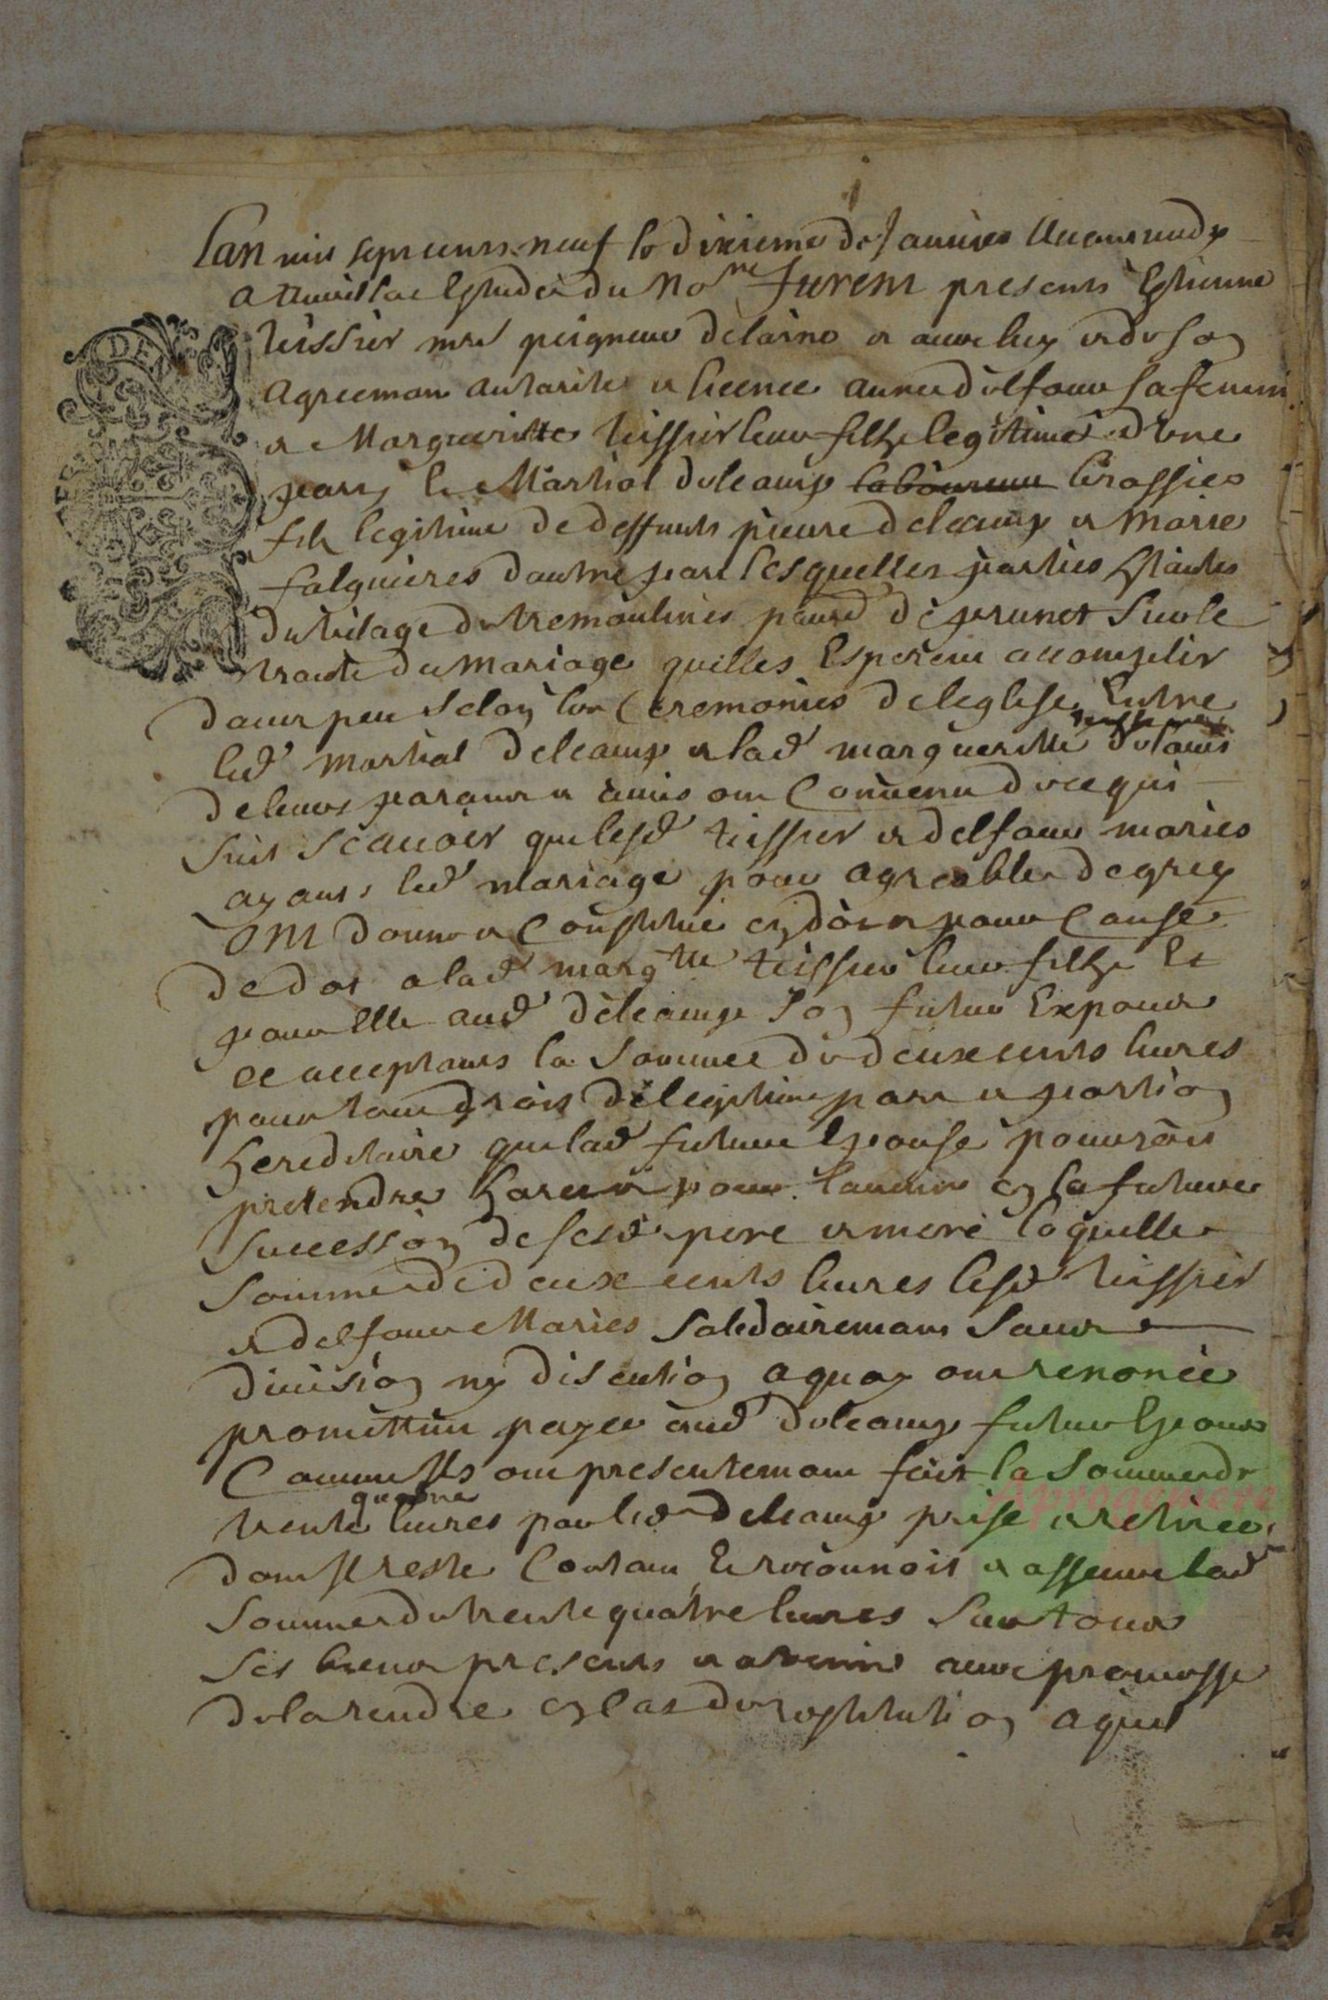 1
Lan mil sept cents neuf le dixieme de Janvier avant midy
a Aurillac Estude du No.re furent presents Estienne
teissier m.re peigneur de laine et avec luy et de son
agreement autarite et licence anne delfour sa femme
et Margueritte teissier leur filhe legitime d'une
part, et Martial delcamp laboureur brassier
fils legitime de deffunts pierre delcamp et Marie
falguieres dautre part lesquelles parties h̃antes
du vilage de tremoulines par.se de prunet sur le
traite du mariage quilles Esperent accomplir
dans peu selon les Ceremonies de leglise Entre
led. martial delcamp et lad. margueritte teissier de lavis
de leurs parans et amis ont Convenu de ce qui
suit scavoir que lesd. teissier et delfour maries
ayans led. mariage pour agreable de grey
ont donne et Constitue en dot et pour Cause
de dot a lad. marg.tte teissier leur filhe Et
pour Elle aud. delcamp son futur Expoux
ce acceptants la somme de deux cents livres
pour tout droit de legitime part et portion
hereditaire que lad. future Epouse pourroit
pretendre havoir pour lavenir en la future
succession de sesd. pere et mere laquelle
somme de deux cents livres lesd. teissier
et delfour Maries solidairement sans
division ny discution a quoy ont renoncé
promettent payer aud. delcamp futur Epoux
Comme Ils ont presentement fait la somme de
trente quatre livres par led. delcamp prise et retiree
dont Il reste Contant Et reconnoit et assure lad.
somme de trente quatre livres sur tous
ses biens presents et avenir avec promesse
de la rendre en cas de restitution a qui
Aprogemere